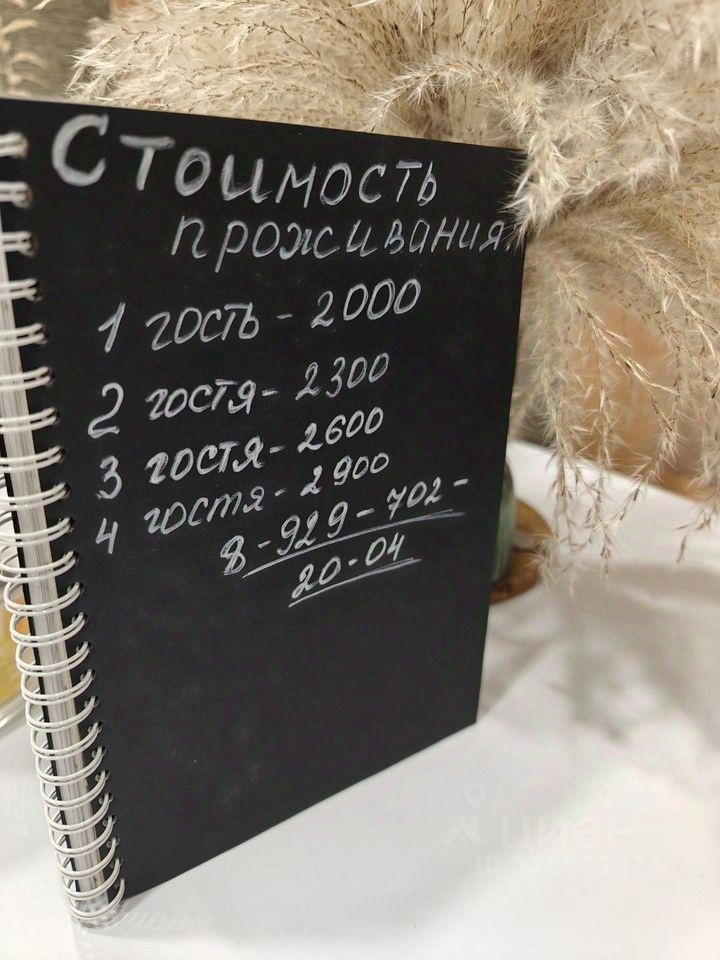 Стоимость
проживания
1 гость - 2000
2 гостя - 2300
3 гостя - 2600
4 гостя - 2900
8-929-702-
20-04
циан